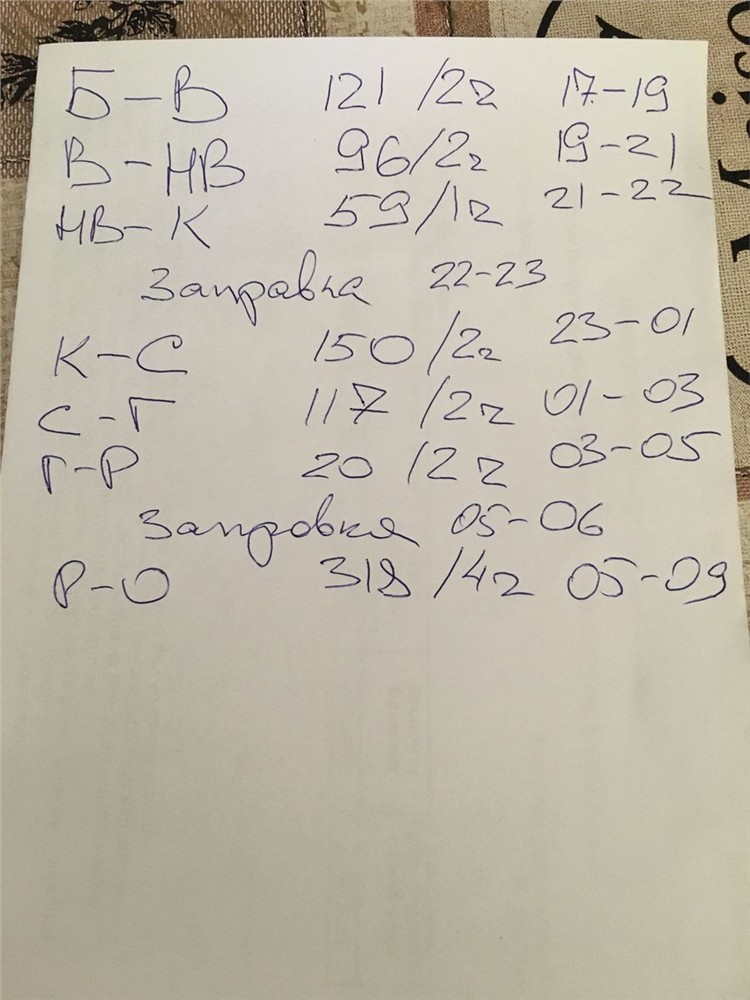 Б-В 121/2г 17-19
В-НВ 96/2г 19-21
НВ-К 59/1г 21-22
Заправка 22-23
К-С 150/2г 23-01
С-Г 117/2г 01-03
Г-Р 20/2г 03-05
Заправка 05-06
Р-О 318/4г 05-09